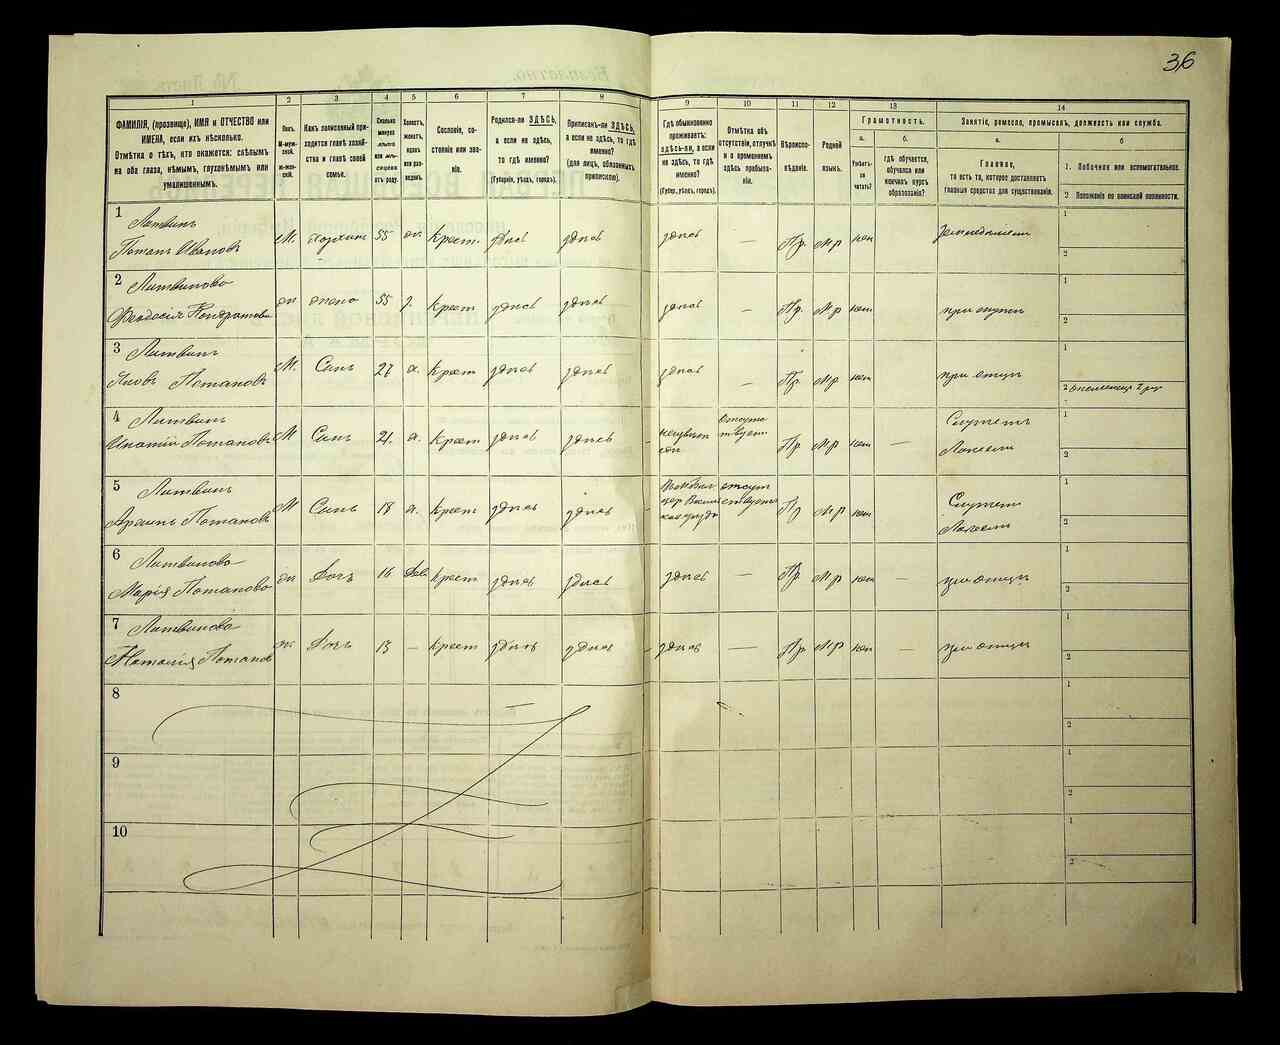 36
1
2
3
4
5
6
7
8
9
10
11
12
13
14
ФАМИЛІЯ, (прозвище), ИМЯ и ОТЧЕСТВО или
ИМЕНА, если ихъ нѣсколько.
Отмѣтка о тѣхъ, кто окажется: слѣпымъ
на оба глаза, нѣмымъ, глухонѣмымъ или
умалишеннымъ.
Полъ.
М-муж-
ской.
Ж-жен-
скій.
Какъ записанный при-
ходится главѣ хозяй-
ства и главѣ своей
семьи.
Сколько
минуло
лѣтъ
или мѣ-
сяцевъ
отъ роду.
Холостъ,
женатъ,
вдовъ
или раз-
веденъ.
Сословіе, со-
стояніе или зва-
ніе.
Родился-ли ЗДѢСЬ,
а если не здѣсь,
то гдѣ именно?
(Губернія, уѣздъ, городъ).
Приписанъ-ли ЗДѢСЬ,
а если не здѣсь, то гдѣ
именно?
(для лицъ, обязанныхъ
припискою).
Гдѣ обыкновенно
проживаетъ:
здѣсь-ли, а если
не здѣсь, то гдѣ
именно?
(Губер., уѣздъ, городъ).
Отмѣтка объ
отсутствіи, отлучкѣ
и о временномъ
здѣсь пребыва-
ніи.
Вѣроиспо-
вѣданіе.
Родной
языкъ.
Грамотность.
а.
Умѣетъ-
ли
читать?
б.
гдѣ обучается,
обучался или
кончилъ курсъ
образованія?
Занятіе, ремесло, промыселъ, должность или служба.
а.
Главное,
то есть то, которое доставляетъ
главныя средства для существованія.
б
1. Побочное или вспомогательное.
2 Положеніе по воинской повинности.
1
Литвинъ
Потапъ Ивановъ
М. Хозяинъ 55 Крест. здѣсь здѣсь здѣсь — Пр. М р нѣт Земледѣлецъ
1
2
2
Литвинова
Феодосія Кондратова
жена 55 Крест здѣсь здѣсь здѣсь — Пр. М р нѣт при мужѣ
1
2
3
Литвинъ
Яковъ Потаповъ
М. Сынъ 27 Крест здѣсь здѣсь здѣсь — Пр. М р нѣт при отцѣ
1
2
4
Литвинъ
Игнатій Потаповъ
М Сынъ 21. Крест здѣсь здѣсь
Отсутс
твуетъ
Пр М р нѣт —
Служитъ
Лакеемъ
1
2
5
Литвинъ
Потаповъ
М Сынъ 18 Крест здѣсь здѣсь
отсут
ствуетъ
Пр М р нѣт
Служитъ
Лакеемъ
1
2
6
Литвинова
Марія Потапова
Дочь 16 Дѣв. Крест здѣсь здѣсь здѣсь — Пр. М р нѣт — при отцѣ
1
2
7
Литвинова
Наталія Потапов
Дочь 13 — Крест здѣсь здѣсь здѣсь — Пр. М р нѣт — при отцѣ
1
2
8
1
2
9
1
2
10
1
2